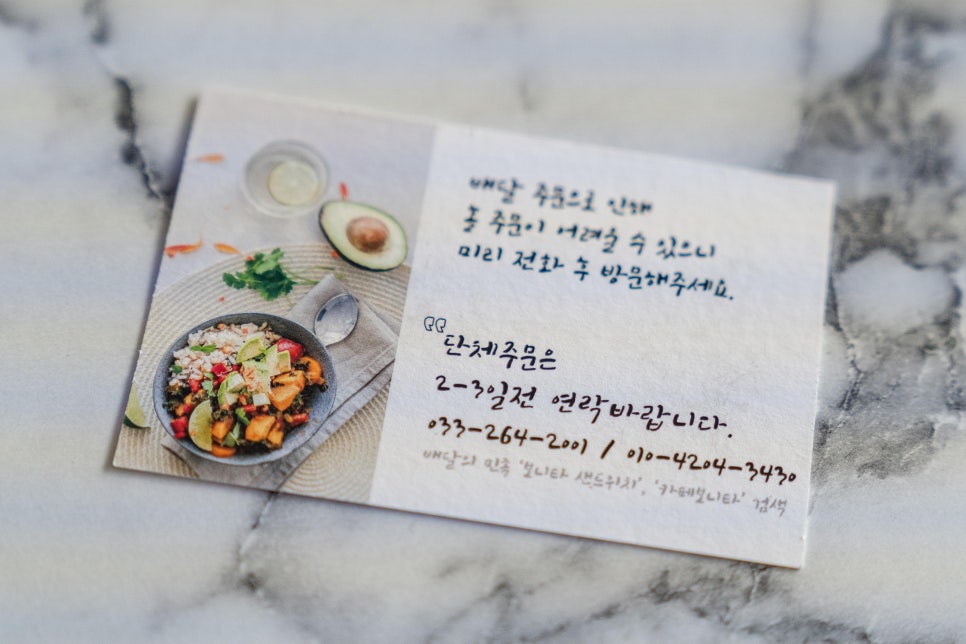 배달 주문으로 인해
홀 주문이 어려울 수 있으니
미리 전화 후 방문해주세요.
단체주문은
2-3일전 연락바랍니다.
033-264-2001 / 010-4204-3430
배달의 민족 '보니타 샌드위치', '카페보니타' 검색